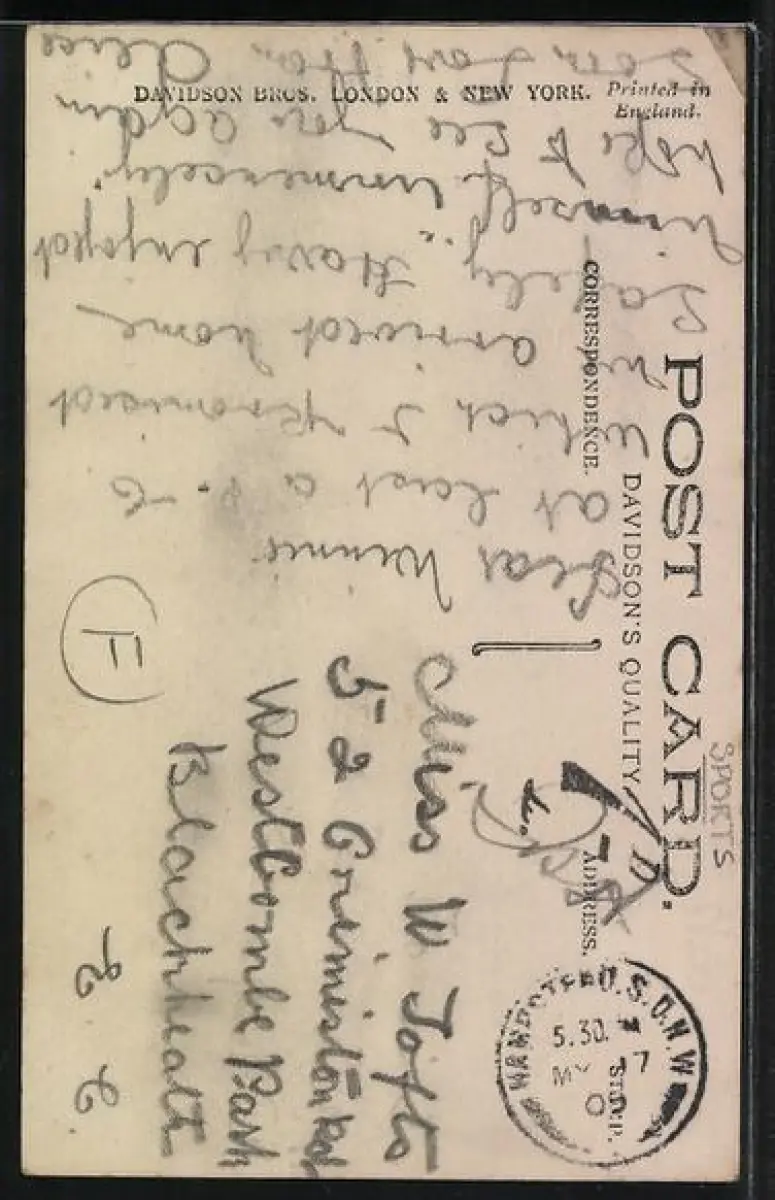 POST CARD.
DAVIDSON'S QUALITY
CORRESPONDENCE.
ADDRESS.
SPORTS
Dear Winnie
at last a P. C
which I promised
he arrived home
safely. Having enjoyed
himself "immencely"
hope to see you again
soon
Miss W Tofts
52
Westcombe Park
Blackheath
S. E
F
HAMPSTEAD. S.O. N.W
5.30
MY 7
0
STAMP.
DAVIDSON BROS. LONDON & NEW YORK. Printed in England.